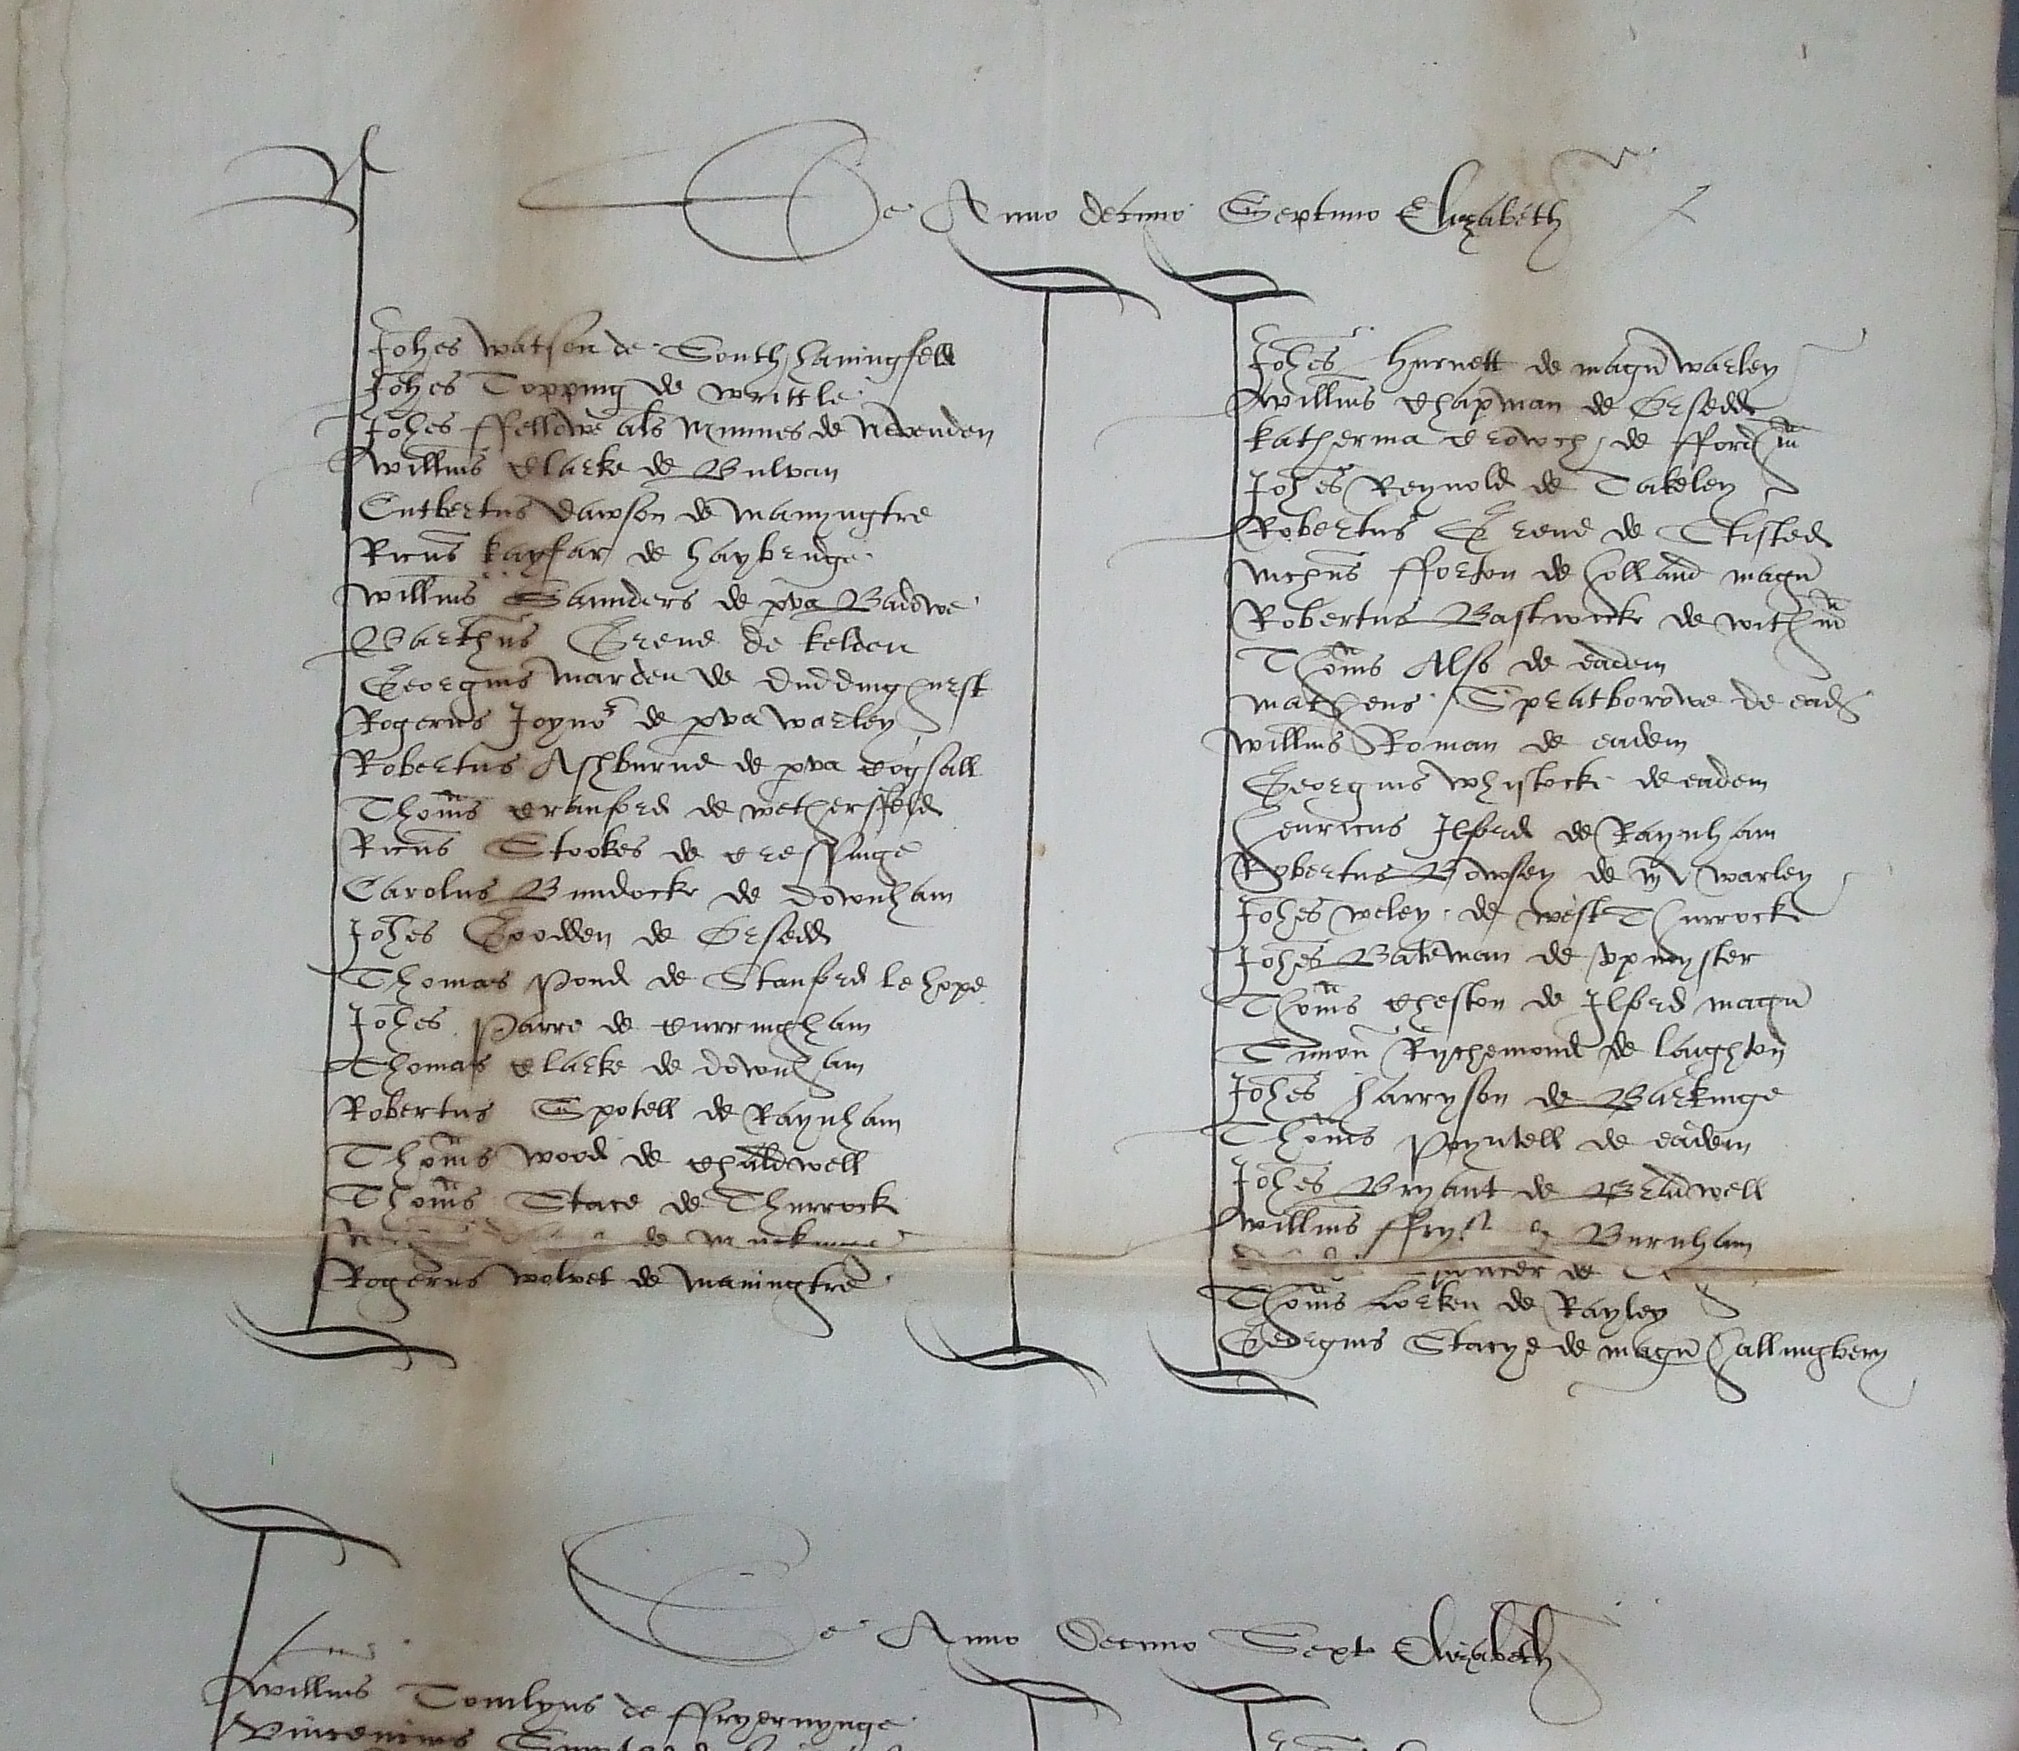 De Anno decimo Septimo Elizabeth
Johes Watson de South haningfeld
Johes Topping de Writtle
Johes ffellowe als Mynnes de Nevenden
Willms Clarke de Bulvan
Cutbertus Dawson de Manyngtre
Ricus kayfar de haybridge
Willms Saunders de pva Badowe
Barthus Grene de keldon
Georgius Marden de Duddinghurst
Rogerus Joyno de pva Warley
Robertus Ashburne de pva Cogsall
Thoms Cranford de Wethersffeld
Ricus Stookes de Cressinge
Carolus Bundocke de Downham
Johes Goodden de Orsedd
Thomas Pond de Stanford le hope
Johes Parre de Curringham
Thomas Clarke de Downham
Robertus Spotell de Raynham
Thoms Wood de Chaldwell
Thoms Stace de Thurrock
de Muckinge
Rogerus Wolvet de Maningtre
Johes Hurnett de magn Warley
Willms Chapman de Orsedd
Katherina Crowch de ffordhm
Johes Reynold de Takeley
Robertus Grene de Elisted
Nichus fforton de Holland magn
Robertus Bastwicke de Withm
Thoms Also de eadem
Matheus Spratborowe de ead
Willms Roman de eadem
Georgius Whistocke de eadem
Henricus Ilford de Raynham
Robertus Bowsey de m Warley
Johes Weley de West Thurrocke
Johes Bateman de Upmyster
Thoms Cheston de Ilford magn
Timon Rychemond de Laughton
Johes Harryson de Barkinge
Thoms Poyntell de eadem
Johes Bryant de Bradwell
Willms Burnham
de
Thoms Lorken de Rayley
Georgius Stacye de magn Hallingbery
De Anno Decimo Sexto Elizabeth
Willms Tomlyns de ffryernynge
Vincentius